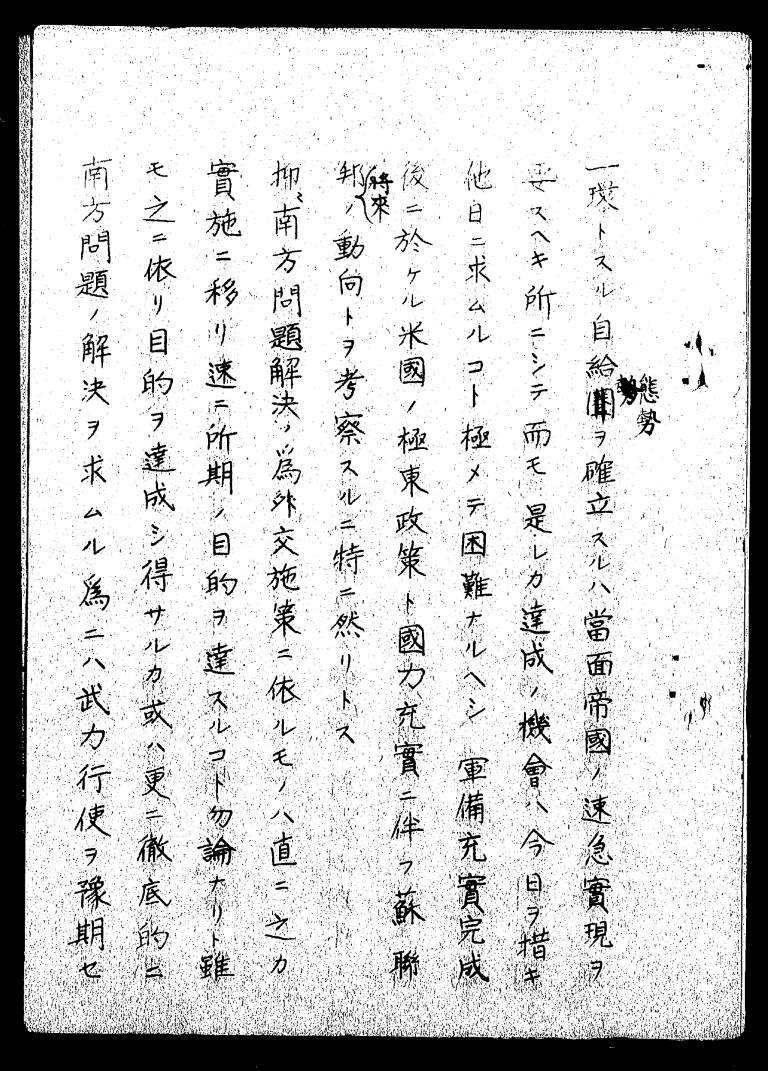 一環トスル自給態勢ヲ確立スルハ當面帝國ノ速急實現ヲ
要スヘキ所ニシテ而モ是レカ達成ノ機會ハ今日ヲ措キ
他日ニ求ムルコト極メテ困難ナルヘシ 軍備充實完成
後ニ於ケル米國ノ極東政策ト國力充實ニ伴フ蘇聯
邦ノ將來動向トヲ考察スルニ特ニ然リトス
抑〻南方問題解決ノ爲外交施策ニ依ルモノハ直ニ之カ
實施ニ移リ速ニ所期ノ目的ヲ達スルコト勿論ナリト雖
モ之ニ依リ目的ヲ達成シ得サルカ或ハ更ニ徹底的ニ
南方問題ノ解決ヲ求ムル爲ニハ武力行使ヲ豫期セ